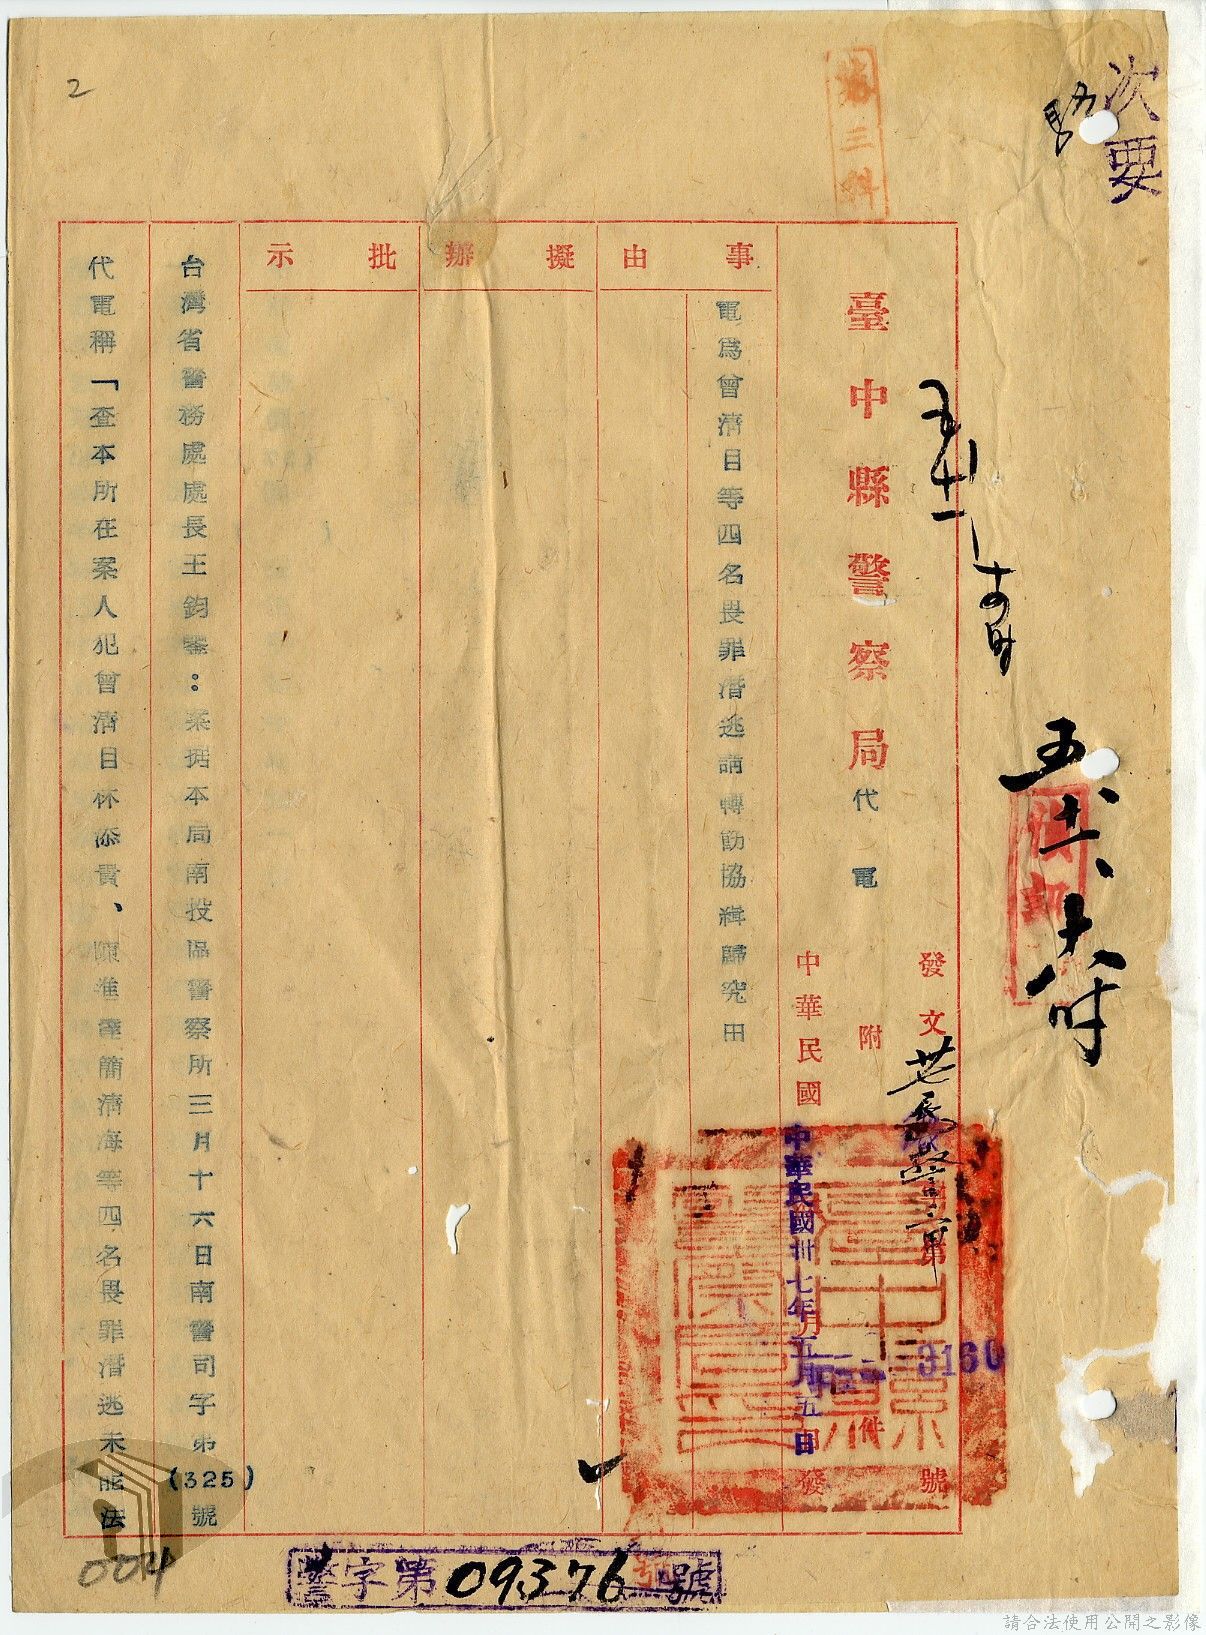 次要
第三科
2
五、十一、
五、十一、
臺中縣警察局代電
發文
第
3160
號
附
件
中華民國
中華民國卅七年五月五日
發
事由
電爲曾清目等四名畏罪潛逃請轉飭協緝歸究由
擬辦
批示
台灣省警務處處長王鈞鑒：案据本局南投區警察所三月十六日南警司字第(325)號
代電稱「查本所在案人犯曾清目林添貴、陳進達簡清海等四名畏罪潛逃未能法
警字第09376號
004
請合法使用公開之影像